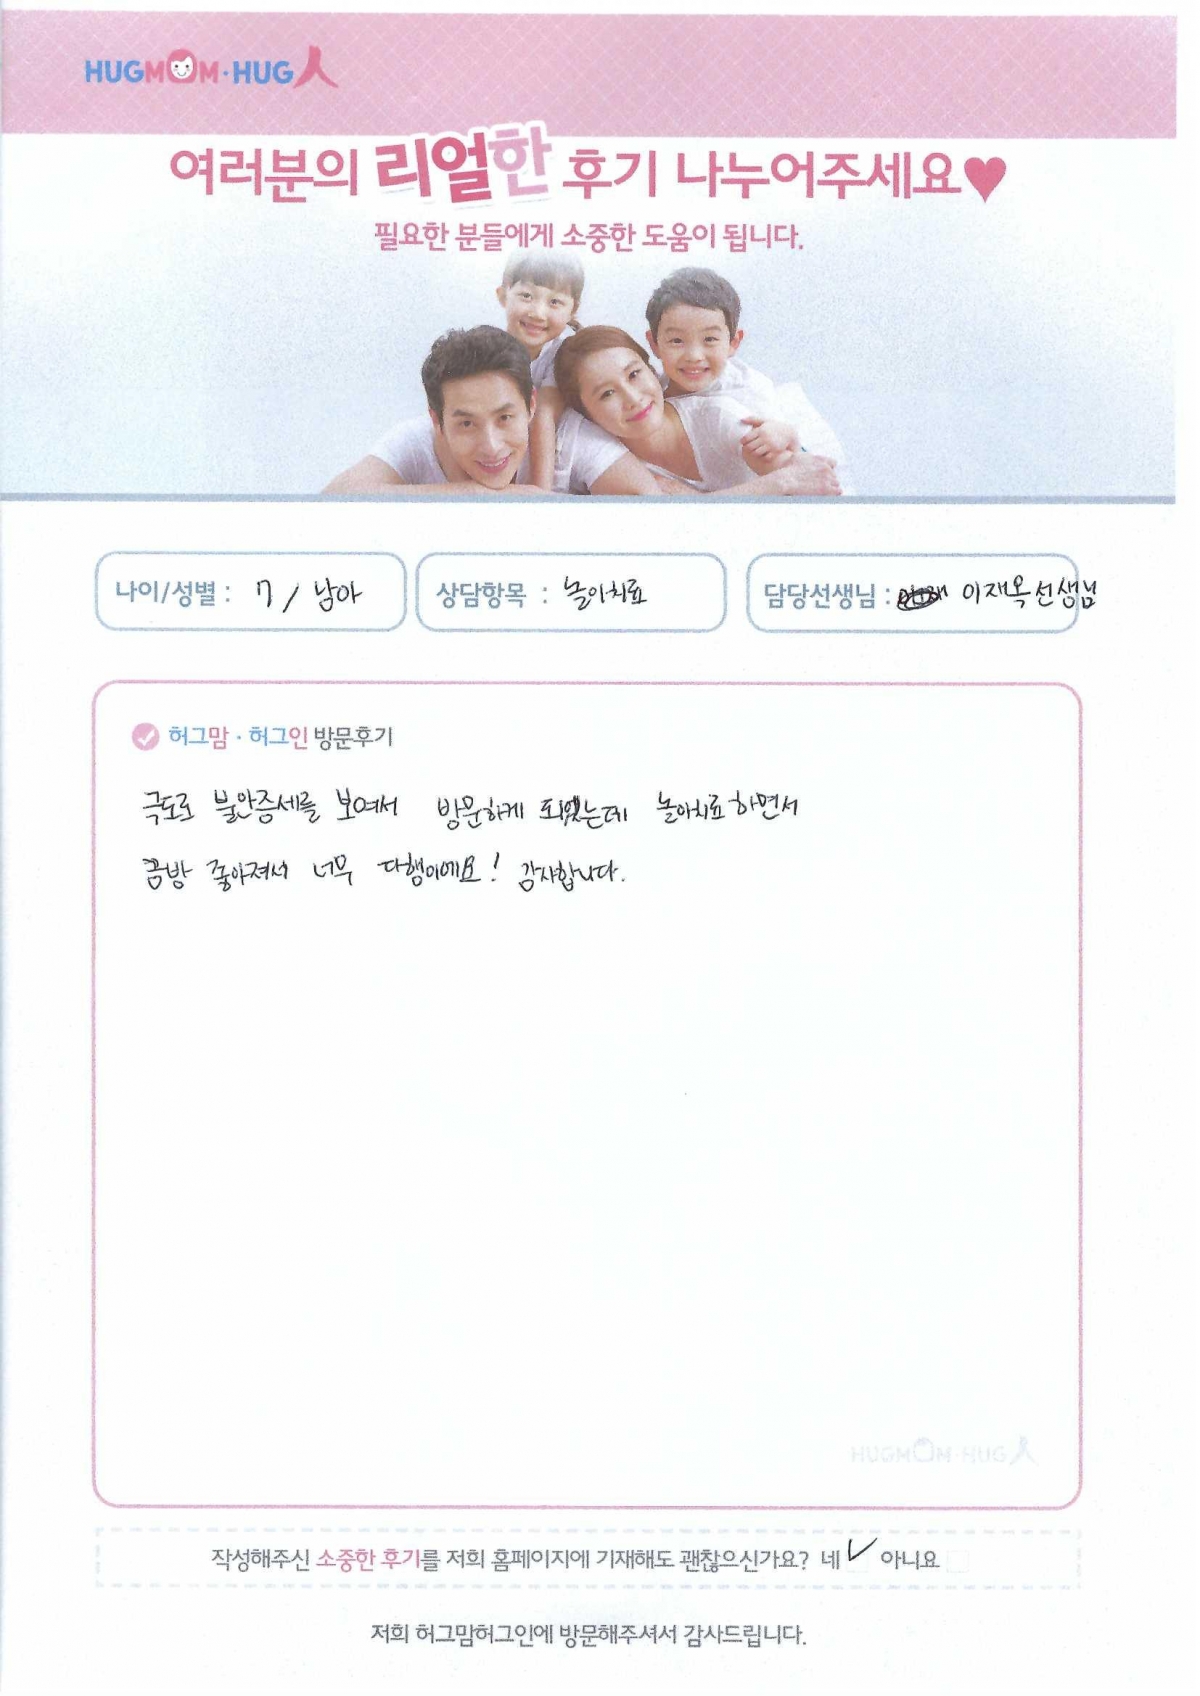 HUGMOM·HUG人
여러분의 리얼한 후기 나누어주세요♥
필요한 분들에게 소중한 도움이 됩니다.
나이/성별 : 7 / 남아
상담항목 : 놀이치료
담당선생님 : 이재옥선생님
허그맘·허그인 방문후기
극도로 불안증세를 보여서 방문하게 되었는데 놀이치료하면서
금방 좋아져서 너무 다행이에요! 감사합니다.
HUGMOM·HUG人
작성해주신 소중한 후기를 저희 홈페이지에 기재해도 괜찮으신가요? 네 ✓ 아니요
저희 허그맘허그인에 방문해주셔서 감사드립니다.